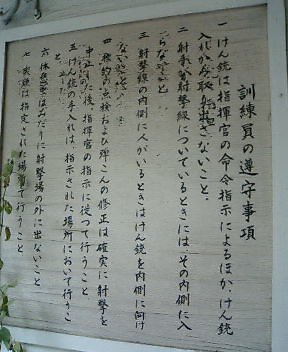 訓練員の遵守事項
一 けん銃は指揮官の命令指示によるほか、けん銃
入れから取り出さないこと。
二 射手が射撃線についているときには、その内側に入
らないこと
三 射撃線の内側に人がいるときはけん銃を内側に向け
ないこと
四 標的の点検および弾こんの修正は確実に射撃を
中止した後、指揮官の指示に従って行うこと
五 けん銃の手入れは、指示された場所において行うこ
と
六 休憩者はみだりに射撃場の外に出ないこと
七 喫煙は指定された場所で行うこと